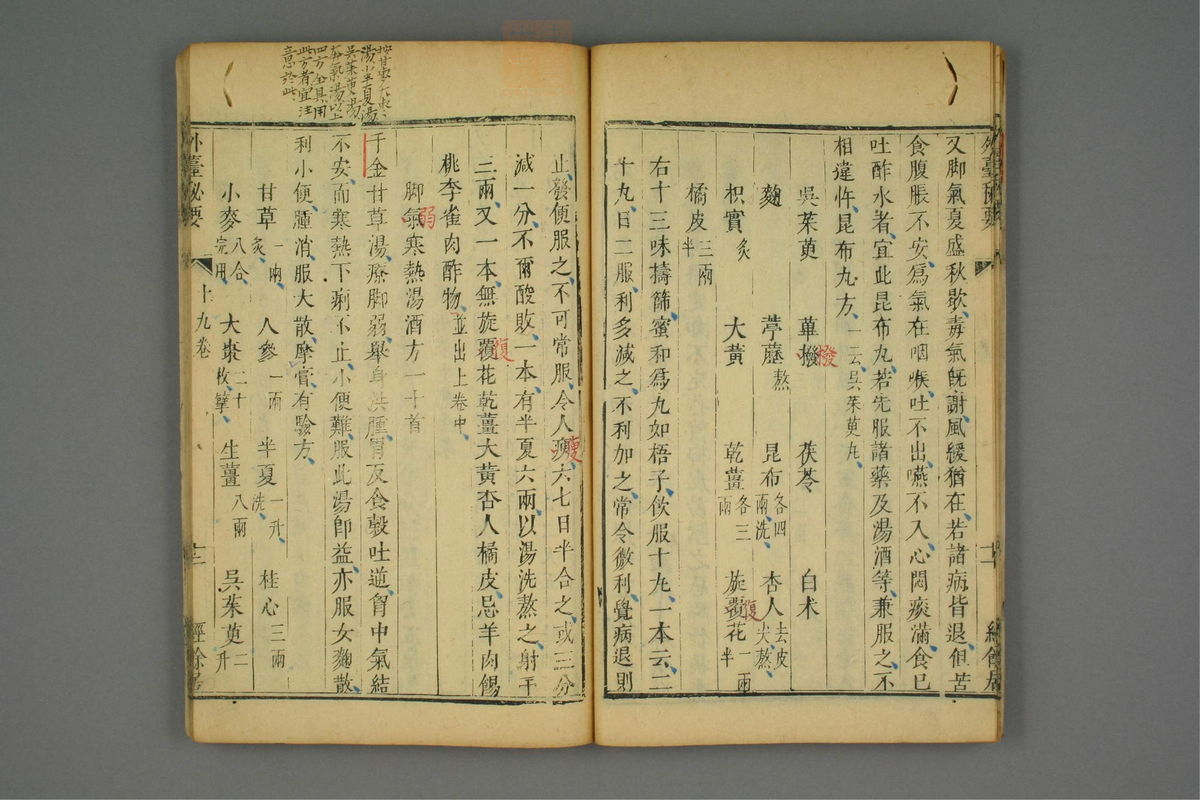 外臺秘要
又脚氣夏盛秋歇毒氣旣謝風緩猶在若諸病皆退但苦
食腹脹不安爲氣在咽喉吐不出嚥不入心悶痰滿食已
吐酢水者宜此昆布丸若先服諸藥及湯酒等兼服之不
相違忤昆布丸方一云吳茱萸丸
吳茱萸 蓽撥 茯苓 白术
麴 葶藶熬 昆布各四兩洗 杏人去皮尖熬
枳實炙 大黃 乾薑各三兩 旋覆花一兩半
橘皮三兩半
右十三味擣篩蜜和爲丸如梧子飲服十九一本云二
十九日二服利多減之不利加之常令微利覺病退則
止發便服之不可常服令人瘦六七日半合之或三分
減一分不爾酸敗一本有半夏六兩以湯洗熬之射干
三兩又一本無旋覆花乾薑大黃杏人橘皮忌羊肉餳
桃李雀肉酢物並出上卷中
脚氣寒熱湯酒方一十首
千金甘草湯療脚弱舉身洪腫胃反食穀吐逆胷中氣結
不安而寒熱下痢不止小便難服此湯卽益亦服女麴散
利小便腫消服大散摩膏有驗方
甘草一兩炙 人參一兩 半夏一升洗 桂心三兩
小麥八合完用 大棗二十枚擘 生薑八兩 吳茱萸二升
外臺秘要 十九卷 十二 經餘居
湯小半夏湯
吳茱萸湯
四方全具用
此方者宜注
意於此
復
弱